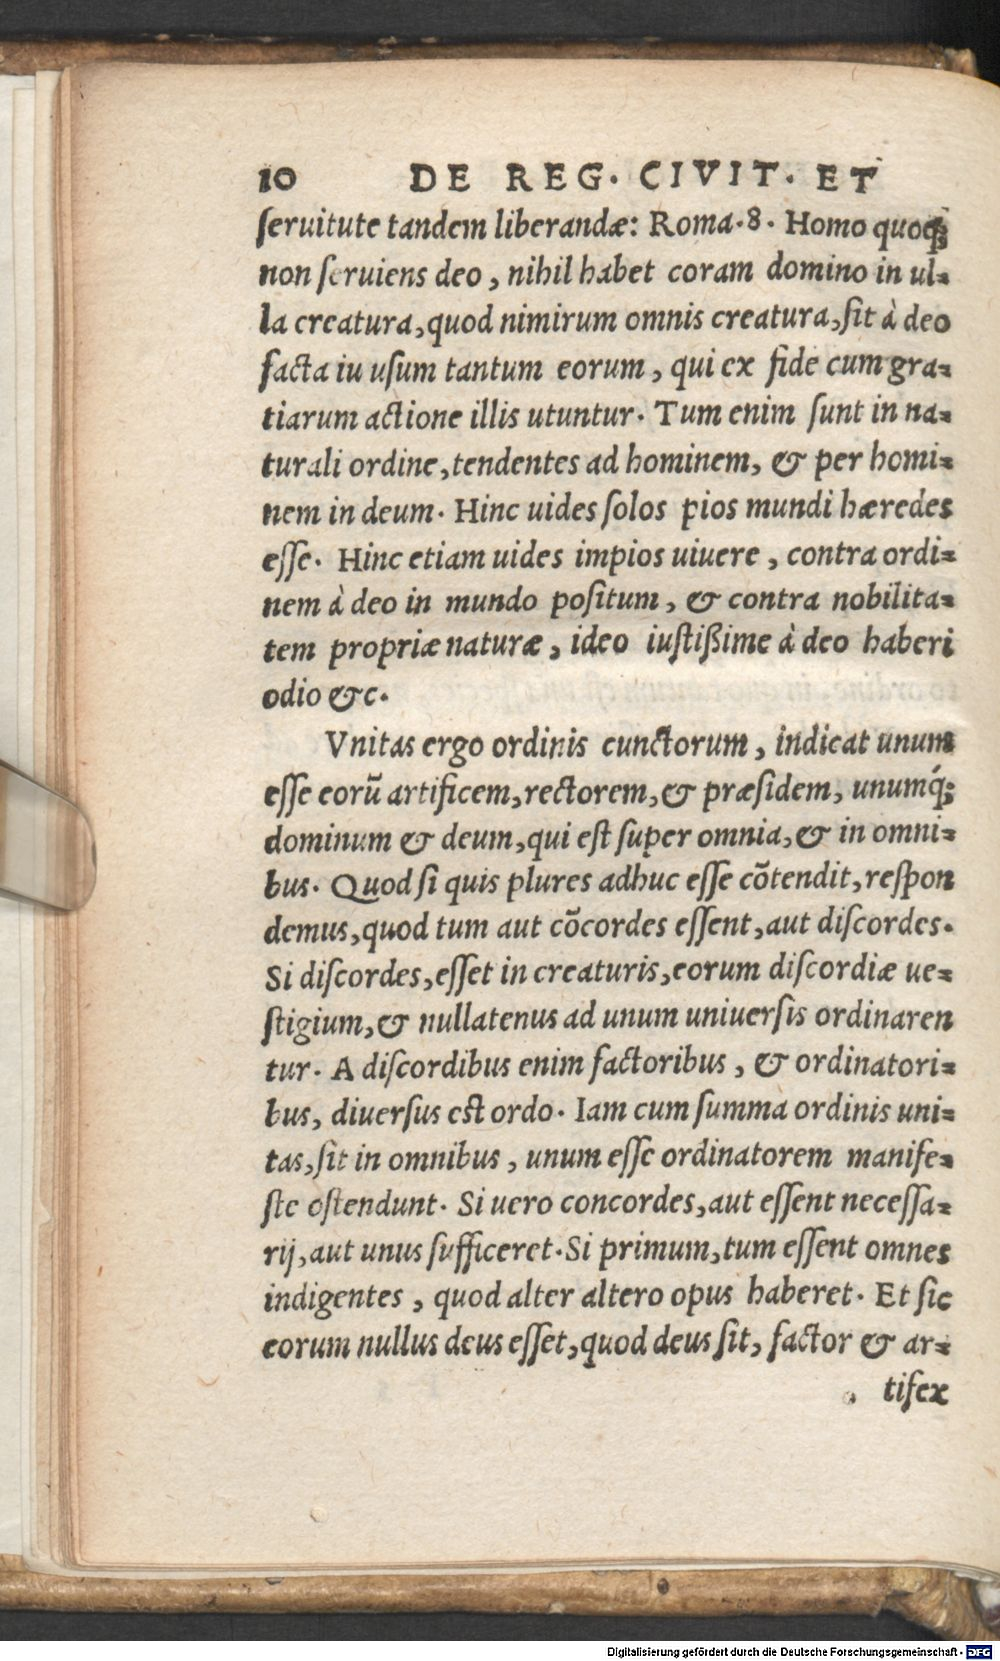 10 DE REG. CIVIT. ET
ſeruitute tandem liberandæ: Roma.8. Homo quoq́;
non ſeruiens deo, nihil habet coram domino in ul-
la creatura, quod nimirum omnis creatura, ſit à deo
facta iu uſum tantum eorum, qui ex fide cum gra-
tiarum actione illis utuntur. Tum enim ſunt in na-
turali ordine, tendentes ad hominem, & per homi-
nem in deum. Hinc uides ſolos pios mundi hæredes
eſſe. Hinc etiam uides impios uiuere, contra ordi-
nem à deo in mundo poſitum, & contra nobilita-
tem propriæ naturæ, ideo iuſtißime à deo haberi
odio &c.
Vnitas ergo ordinis cunctorum, indicat unum
eſſe eorũ artificem, rectorem, & præſidem, unumq́;
dominum & deum, qui eſt ſuper omnia, & in omni-
bus. Quod ſi quis plures adhuc eſſe cõtendit, reſpon
demus, quod tum aut cõcordes eſſent, aut diſcordes.
Si diſcordes, eſſet in creaturis, eorum diſcordiæ ue-
ſtigium, & nullatenus ad unum uniuerſis ordinaren
tur. A diſcordibus enim factoribus, & ordinatori-
bus, diuerſus eſt ordo. Iam cum ſumma ordinis uni-
tas, ſit in omnibus, unum eſſe ordinatorem manife-
ſte oſtendunt. Si uero concordes, aut eſſent neceſſa-
rij, aut unus ſufficeret. Si primum, tum eſſent omnes
indigentes, quod alter altero opus haberet. Et ſic
eorum nullus deus eſſet, quod deus ſit, factor & ar-
tifex
Digitalisierung gefördert durch die Deutsche Forschungsgemeinschaft - DFG